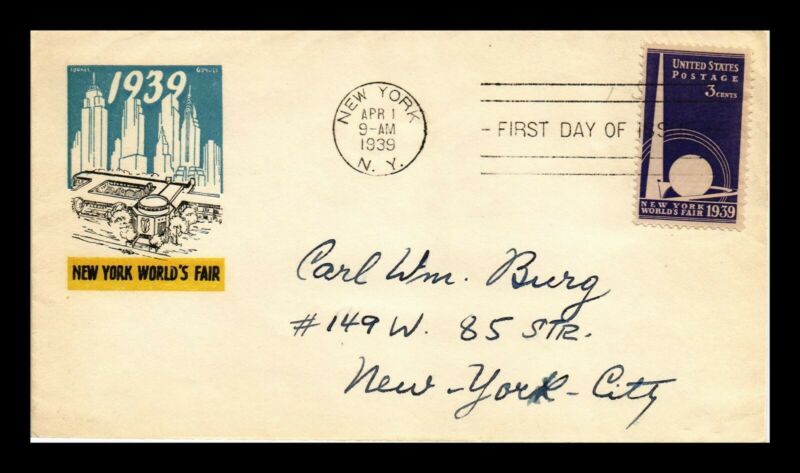 1939
NEW YORK WORLD'S FAIR
NEW YORK
APR 1
9-AM
1939
N. Y.
FIRST DAY OF ISSUE
UNITED STATES
POSTAGE
3 CENTS
NEW YORK
WORLD'S FAIR 1939
Carl Wm. Burg
#149 W. 85 STR.
New-York-City